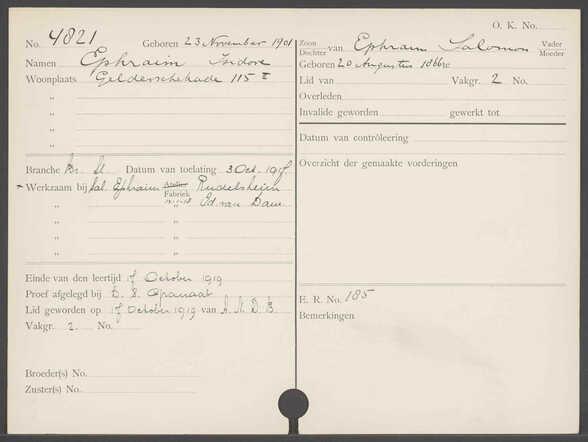 O. K. No.
No. 4821 Geboren 23 November 1901
Namen Ephraim Isidore
Woonplaats Gelderschekade 115 I
„
„
„
„
Branche Br. Sl. Datum van toelating 3 Oct. 1917
Werkzaam bij Sal. Ephraim Atelier Fabriek Rudelsheijm
„ „ Ed. van Dam
„ „
„ „
Einde van den leertijd 17 October 1919
Proef afgelegd bij D. S. Granaat
Lid geworden op 17 October 1919 van A. N. D. B.
Vakgr. 2 No.
Broeder(s) No.
Zuster(s) No.
Zoon Dochter van Ephraim Salomon Vader Moeder
Geboren 20 Augustus 1866
Lid van Vakgr. 2 No.
Overleden
Invalide geworden gewerkt tot
Datum van contrôleering
Overzicht der gemaakte vorderingen
E. R. No. 185
Bemerkingen